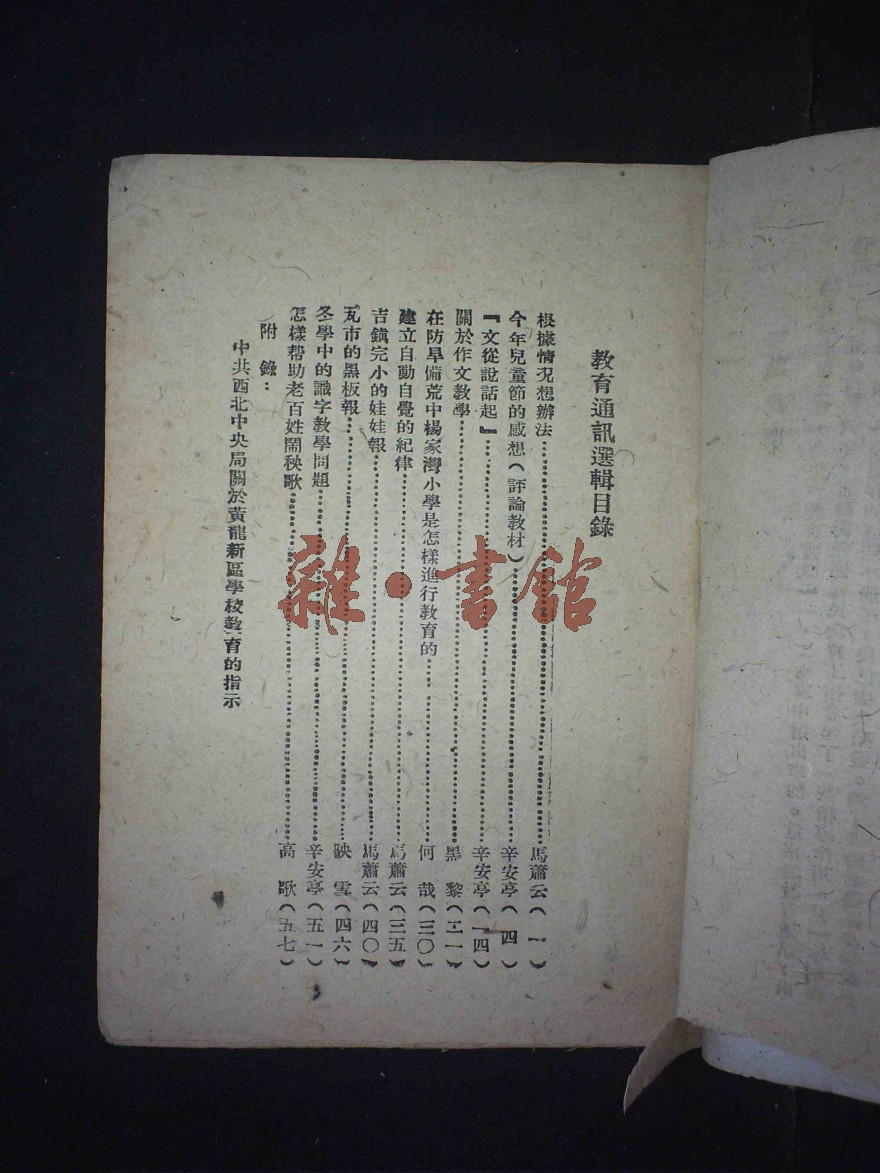 教育通訊選輯目錄
根據情况想辦法……馬蕭云(一)
今年兒童節的感想(評論教材)……辛安亭(四)
『文從說話起』……辛安亭(一四)
關於作文教學……黑黎(二一)
在防旱備荒中楊家灣小學是怎樣進行教育的……何哉(三〇)
建立自動自覺的紀律……馬蕭云(三五)
吉鎮完小的娃娃報……馬蕭云(四〇)
瓦市的黑板報……映雪(四六)
冬學中的識字教學問題……辛安亭(五一)
怎樣帮助老百姓鬧秧歌……高歌(五七)
附錄：
中共西北中央局關於黃龍新區學校教育的指示
雜·書館